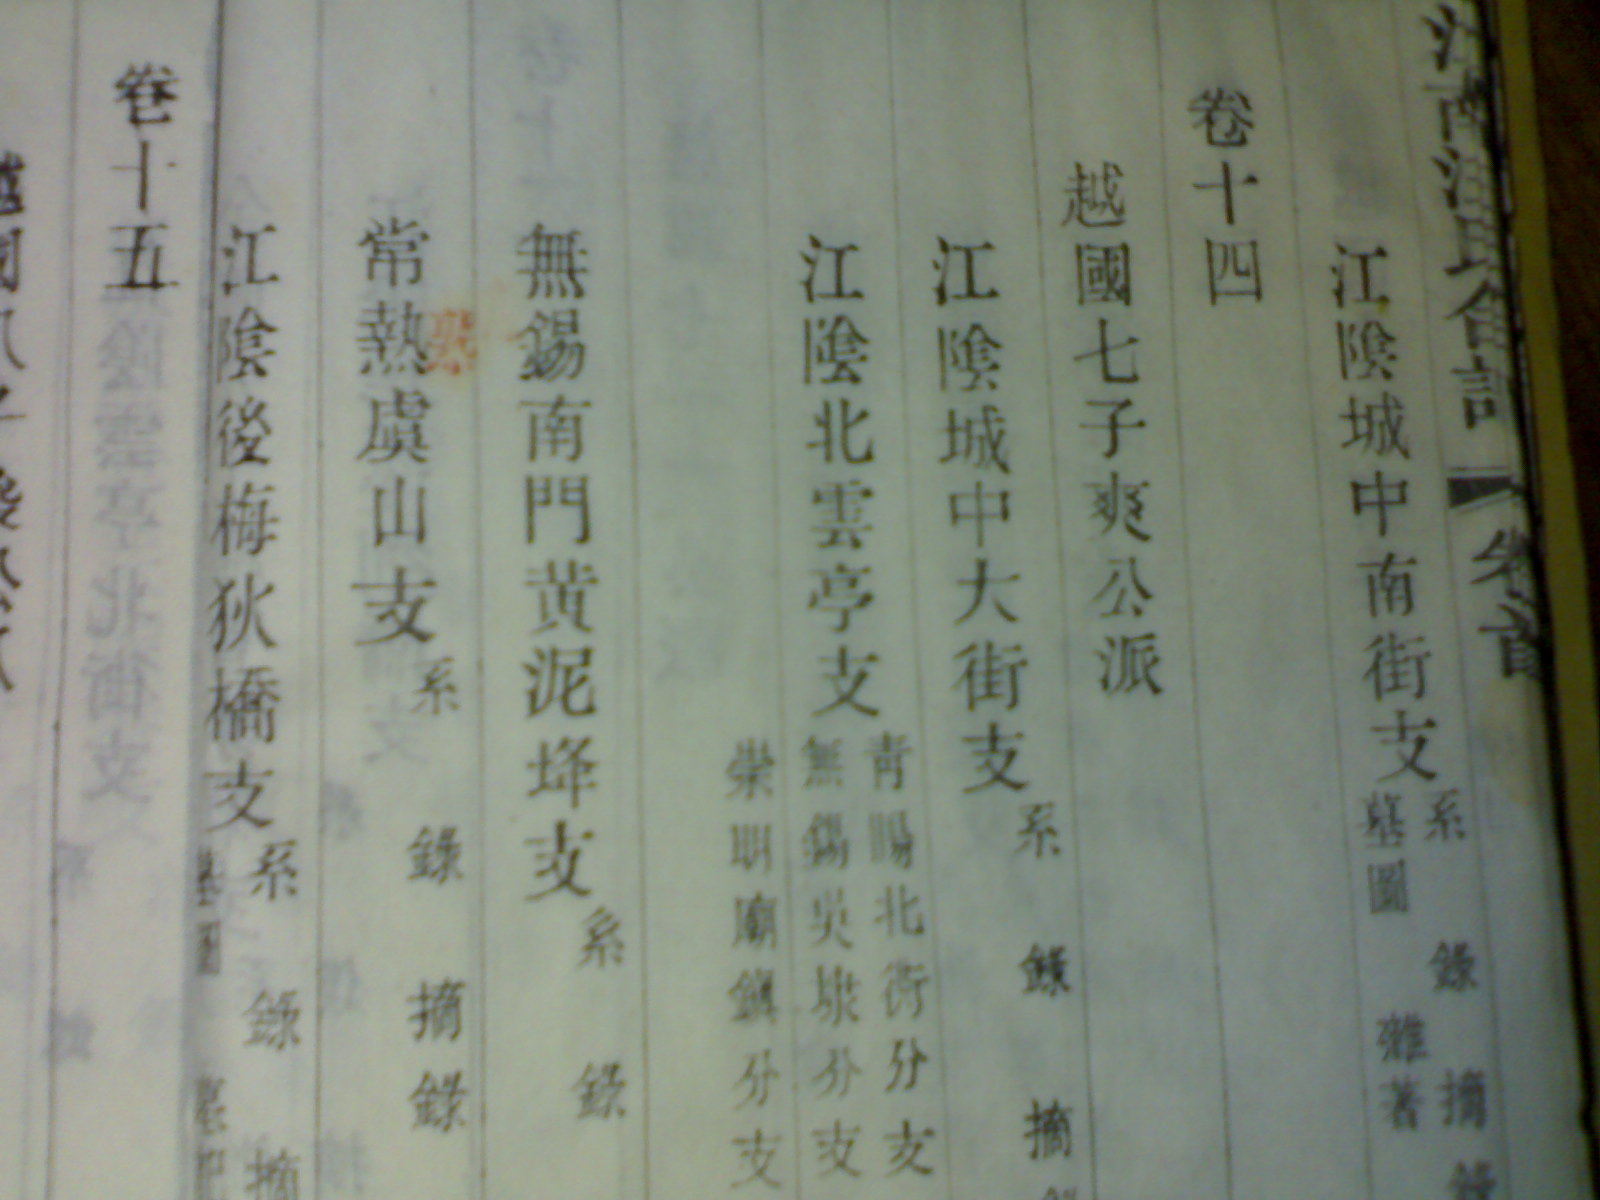 卷首
江陰城中南街支 系 錄 摘
墓圖 雜著
卷十四
越國七子爽公派
江陰城中大街支 系 錄 摘
江陰北雲亭支 青暘北街分支
無錫吳埭分支
崇明廟鎭分支
無錫南門黃泥埄支 系 錄
常熱虞山支 系 錄 摘錄
熟
江陰後梅狄橋支 系 錄 摘
墓圖 墓記
卷十五
越國